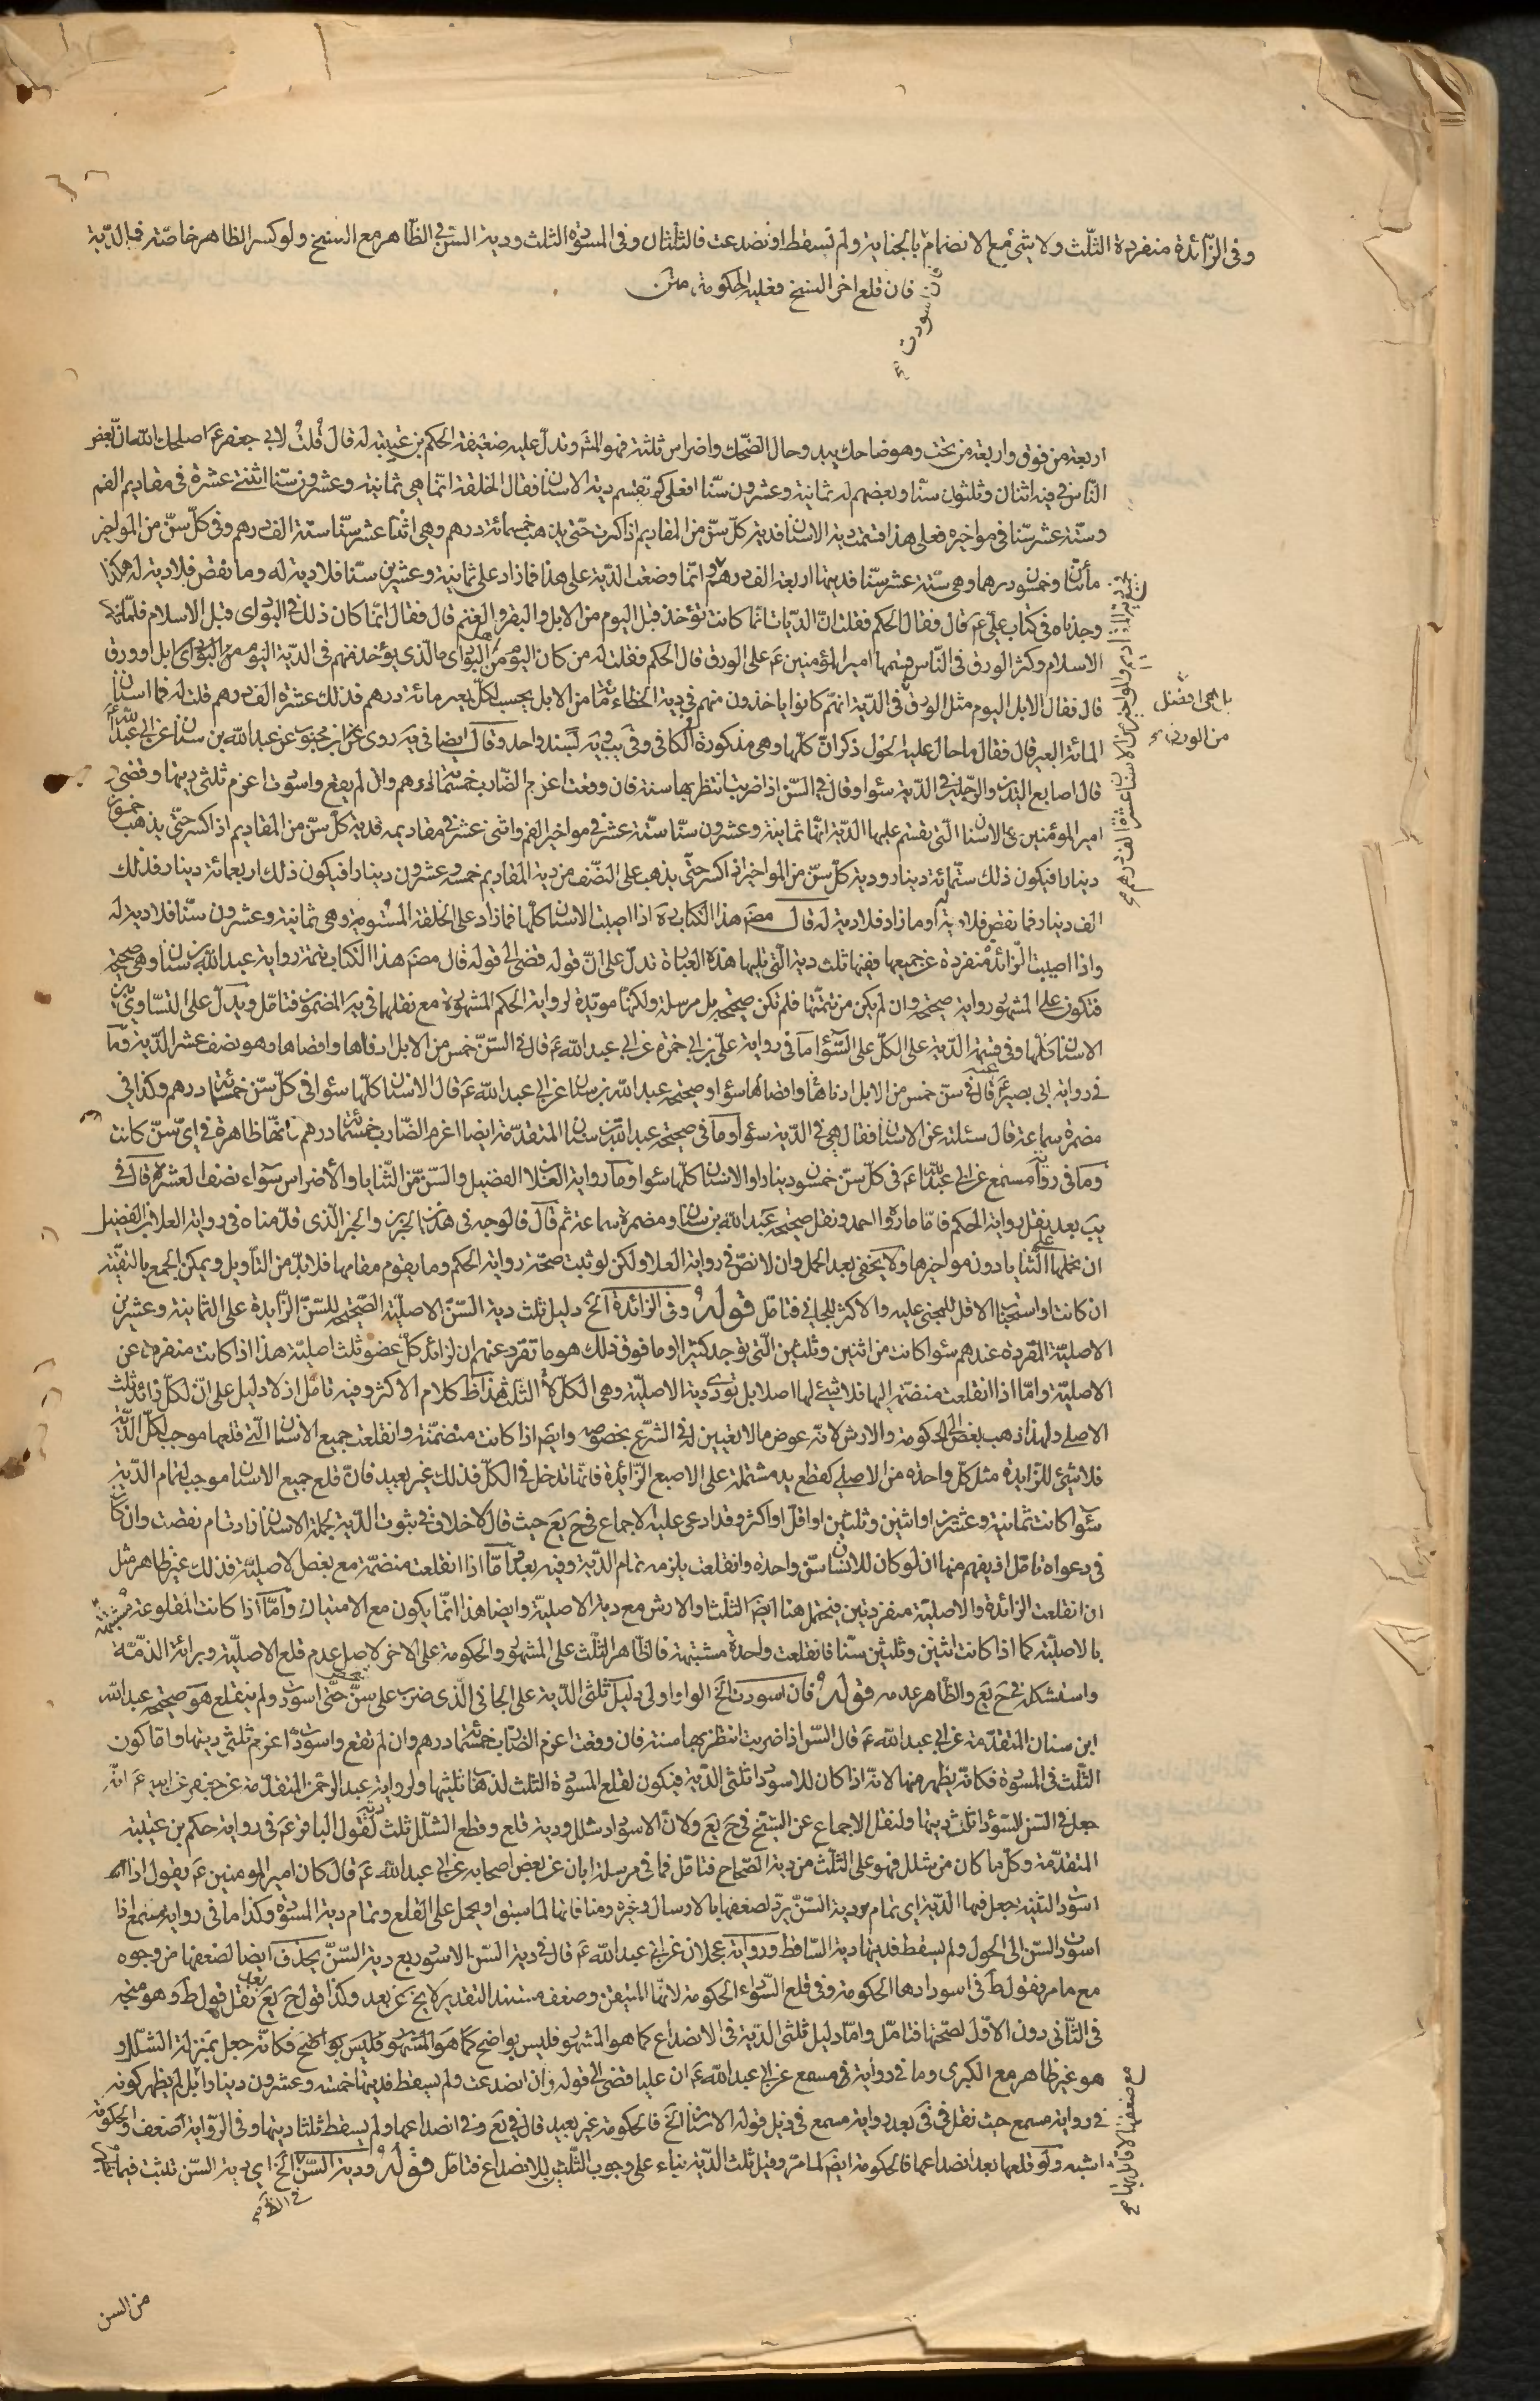 وفى الزّائدة منفردة الثّلث ولا شئ مع الانضمام بالجناية ولم تسقط او تصدعت فالثلثان وفى المسودّة الثلث ودية السنّ فى الظّاهر مع السنخ ولو كسر الظاهر خاصّة فالدّية
فان قلع اخر السنخ فعليه الحكومة متن
فان اسودت
اربعة من فوق واربعة من تحت وهو ضاحك يبدو حال الضّحك واضراس ثلثة فهو المشه وتدلّ عليه ضعيفة الحكم بن عتيبة له قال قلت لابى جعفر ع اصلحك اللّه انّ بعض
النّاس فى فيه اثنان وثلثون سنّا وبعضهم له ثمانية وعشرون سنّا فعلى كم تقسم دية الاسنان فقال الخلقة انّما هى ثمانية وعشرون سنّا اثنتى عشرة فى مقاديم الفم
وستّة عشر سنّا فى مواخيره فعلى هذا قسمت دية الاسنان فدية كلّ سنّ من المقاديم اذا كسرت حتّى يذهب خمسمائة درهم وهى اثنتا عشر سنّا ستّة الف درهم وفى كلّ سنّ من المواخير
مأتان وخمسون درهما وهى ستّة عشر سنّا فديتها اربعة الف درهم وانّما وضعت الدّية على هذا فما زاد على ثمانية وعشرين سنّا فلا دية له وما نقص فلا دية له هكذا
وجدناه فى كتاب علىّ ع قال فقال الحكم فقلت انّ الدّيات انّما كانت تؤخذ قبل اليوم من الابل والبقر والغنم قال فقال انّما كان ذلك فى البوادى قبل الاسلام فلمّا ظهر
الاسلام وكثر الورق فى النّاس قسّمها امير المؤمنين ع على الورق قال الحكم فقلت له من كان اليوم من البوادى ما الّذى يؤخذ منهم فى الدّية اليوم من البوادى ابل او ورق
قال فقال الابل اليوم مثل الورق فى الدّية انهم كانوا ياخذون منهم فى دية الخطاء مائة من الابل يحسب لكلّ بعير مائة درهم فذلك عشرة الف درهم قلت له فما اسنان
بل هى افضل
من الورق
المائة البعير قال فقال ما حال عليه الحول ذكران كلّها وهى مذكورة فى الكافى وفى يب ويه بسند واحد وقال ايضا فى يه روى ابن محبوب عن عبد اللّه بن سنان عن ابى عبد اللّه ع
قال اصابع اليدين والرّجلين فى الدّية سواء وقال فى السنّ اذا ضربت انتظر بها سنة فان وقعت اغرم الضّارب خمسمائة درهم وان لم يقع واسودّت اغرم ثلثى ديتها وقضى
امير المؤمنين ع فى الاسنان الّتى يقسم عليها الدّية انّها ثمانية وعشرون سنّا ستّة عشر فى مواخير الفم واثنى عشر فى مقاديمه فدية كلّ سنّ من المقاديم اذا كسر حتّى يذهب خمسون
دينارا فيكون ذلك ستّمائة دينار ودية كلّ سنّ من المواخير اذا كسر حتّى يذهب على النّصف من دية المقاديم خمسة وعشرون دينارا فيكون ذلك اربعمائة دينار فذلك
الف دينار فما نقص فلا دية له وما زاد فلا دية له قال مصنّف هذا الكتاب ره اذا اصيبت الاسنان كلّها فما زاد على الخلقة المستوية وهى ثمانية وعشرون سنّا فلا دية له
واذا اصيبت الزّائدة منفردة عن جميعها ففيها ثلث دية الّتى تليها هذه العبارة تدلّ على انّ قوله قضى الى قوله قال مصنّف هذا الكتاب تتمّة رواية عبد اللّه بن سنان وهى صحيحة
فتكون على المشهور رواية صحيحة وان لم يكن من تتمّتها فلم تكن صحيحة بل مرسلة ولكنّها مويّدة لرواية الحكم المشهورة مع نقلها فى يه المضمون فتامّل ويدلّ على التّساوى بين
الاسنان كلّها وفى قسمة الدّية على الكلّ على السّواء ما فى رواية علىّ بن ابى حمزة عن ابى عبد اللّه ع قال فى السّنّ خمس من الابل ادناها واقصاها وهو نصف عشر الدّية وما
فى رواية ابى بصير عنه ع قال فى سنّ خمس من الابل ادناها واقصاها سواء وصحيحة عبد اللّه بن سنان عن ابى عبد اللّه ع قال الاسنان كلّها سواء فى كلّ سنّ خمسمائة درهم وكذا فى
مضمرة سماعة قال سئلته عن الاسنان فقال هى فى الدّية سواء وما فى صحيحة عبد اللّه بن سنان المتقدّمة ايضا اغرم الضّارب خمسمائة درهم فانّها ظاهرة فى اىّ سنّ كانت
وما فى رواية مسمع عن ابى عبد اللّه ع فى كلّ سنّ خمسون دينارا والاسنان كلّها سواء وما رواية العلا بن الفضيل والسّنّ من الثّنايا والأضراس سواء نصف العشر قال فى
يب بعد نقل رواية الحكم فامّا ما رواه احمد ونقل صحيحة عبد اللّه بن سنان ومضمرة سماعة ثم قال فالوجه فى هذين الخبرين والخبر الّذى قدّمناه فى رواية العلا بن الفضيل
ان نحملها على الثّنايا دون مواخيرها ولا يخفى بعد الحمل وان لا نصّ فى رواية العلا ولكن لو ثبت صحّة رواية الحكم وما يقوم مقامها فلا بدّ من التأويل ويمكن الجمع بالتقيّة
ان كانت او استحباب الاقلّ للمجنى عليه والاكثر للجانى فتامّل قوله وفى الزائدة الخ دليل ثلث دية السّنّ الاصليّة الصّحيحة للسّنّ الزّايدة على الثمانية وعشرين
الاصليّة المقرّرة عندهم سواء كانت من اثنين وثلثين الّتى توجد كثيرا او ما فوق ذلك هو ما تقرر عندهم ان لزائد كلّ عضو ثلث اصليّه هذا اذا كانت منفردة عن
الاصليّة وامّا اذا انقلعت منضمّة اليها فلا شئ لها اصلا بل تودّى دية الاصليّة وهى الكلّ لا الثلث هذا ظ كلام الاكثر وفيه تامّل اذ لا دليل على انّ لكلّ زائد ثلث
الاصلى ولهذا ذهب بعض الى الحكومة والارش لانّه عوض ما لا تعيين له فى الشّرع بخصوصه وايضا اذا كانت منضمّة وانقلعت جميع الاسنان الّتى قلعها موجب لكلّ الدّية
فلا شئ للزّايدة مثل كلّ واحدة من الاصلى كقطع يد مشتملة على الاصبع الزّائدة فانّها تدخل فى الكلّ فذلك غير بعيد فانّ قلع جميع الاسنان موجب لتمام الدّية
سواء كانت ثمانية وعشرين او اثنين وثلثين او اقلّ او اكثر وقد ادعى عليه الاجماع فى ح يع حيث قال لا خلاف فى ثبوت الدّية بجملة الاسنان زادت ام نقصت وان كان
فى دعواه تامّل اذ يفهم منها ان لو كان للانسان سنّ واحدة وانقلعت يلزمه تمام الدّية وفيه بعد وامّا اذا انقلعت منضمّة مع بعض الاصليّة فذلك غير ظاهر مثل
ان انقلعت الزّائدة والاصليّة منفردتين فيحتمل هنا ايضا الثلث او الارش مع دية الاصليّة وايضا هذا انّما يكون مع الامتياز وامّا اذا كانت المقلوعة مشتبهة
بالاصليّة كما اذا كانت اثنين وثلثين سنّا فانقلعت واحدة مشتبهة فالظّاهر الثّلث على المشهور والحكومة على الاخر لاصل عدم قلع الاصليّة وبرائة الذمّة
واستشكله فى ح يع والظّاهر عدمه قوله فان اسودت الخ الواو اولى دليل ثلثى الدّية على الجانى الّذى ضرب على سنّ حتّى اسودّ ولم ينقلع هو صحيحة عبد اللّه
ابن سنان المتقدّمة عن ابى عبد اللّه ع قال السّنّ اذا ضربت انتظر بها سنة فان وقعت اغرم الضّارب خمسمائة درهم وان لم تقع واسودّت اغرم ثلثى ديتها وامّا كون
الثّلث فى المسودّة فكانّه يظهر منها لانّه اذا كان للاسوداد ثلثى الدّية فيكون لقلع المسودّة الثلث لذهاب ثلثيها ولرواية عبد الرحمن المتقدّمة عن جعفر عن ابيه ع انّه
جعل فى السّنّ السّوداء ثلث ديتها ولنقل الاجماع عن الشّيخ فى ح يع ولانّ الاسوداد شلل ودية قلع وقطع الشّلل ثلث ديته لقول الباقر ع فى رواية حكم بن عتيبة
المتقدّمة وكلّ ما كان من شلل فهو على الثّلث من دية الصّحاح فتامّل فما فى مرسلة ابان عن بعض اصحابه عن ابى عبد اللّه ع قال كان امير المومنين ع يقول اذا
اسودّت الثّنية جعل فيها الدّية اى تمام دية السّنّ يردّ لضعفها بالارسال وغيره ومنافاتها لما سبق او يحمل على القلع وتمام دية المسودّة وكذا ما فى رواية مسمع اذا
اسودّت السّنّ الى الحول ولم يسقط فديتها دية السّاقط ورواية عجلان عن ابى عبد اللّه ع قال فى دية السّنّ الاسود ربع دية السّنّ يحذف ايضا لضعفها من وجوه
مع ما مر وبقول ط فى اسودادها الحكومة وفى قلع السّوداء الحكومة لانّها المتيقّن وضعف مستند التقدير لا يخ عن بعد وكذا قول ح يع بعد نقل قول ط وهو متّجه
فى الثّانى دون الاوّل لصحّتها فتامّل وامّا دليل ثلثى الدّية فى الانصداع كما هو المشهور فليس بواضح كما هو المشهور فليس بواضح فكانّه جعل بمنزلة الشّلل و
هو غير ظاهر مع الكبرى وما فى رواية مسمع عن ابى عبد اللّه ع ان عليا قضى الى قوله وان انصدعت ولم يسقط فديتها خمسة وعشرون دينارا بل لم يظهر كونه
فى رواية مسمع حيث نقل فى فى بعد رواية مسمع فى ذيل قوله الاسنان الخ فالحكومة غير بعيد قال فى يع وفى انصداعها ولم يسقط ثلثا ديتها وفى الرّواية ضعف والحكومة
اشبه ولو قلعها بعد انصداعها فالحكومة ايضا لما مرّ وقيل ثلث الدّية بناء على وجوب الثّلثين للانصداع فتامّل قوله ودية السّنّ الخ اى دية السّنّ تثبت فيما
فى الظاهر
من السن